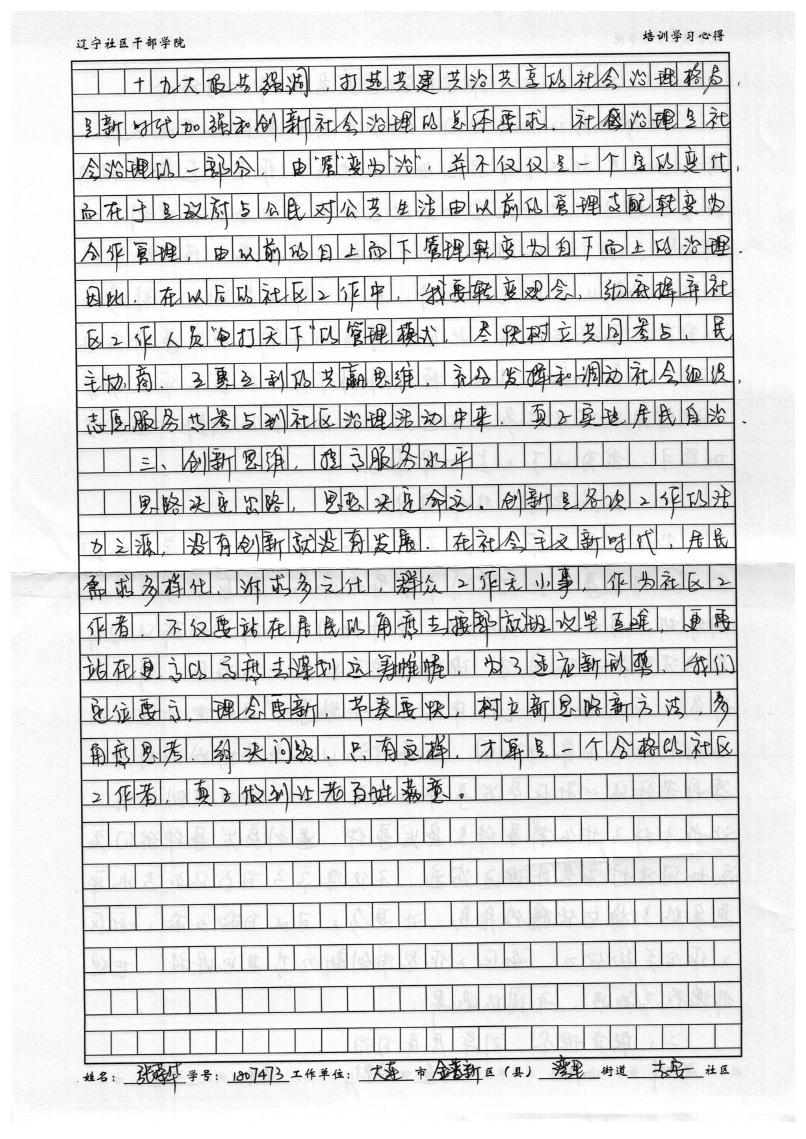 辽宁社区干部学院 培训学习心得
十九大报告强调,打造共建共治共享的社会治理格局,
是新时代加强和创新社会治理的总体要求。社区治理是社
会治理的一部分,由"管"变为"治",并不仅仅是一个字的变化,
而在于是政府与公民对公共生活由以前的管理支配转变为
合作管理,由以前的自上而下管理转变为自下而上的治理。
因此,在以后的社区工作中,我要转变观念,彻底摒弃社
区工作人员"包打天下"的管理模式,尽快树立共同参与、民
主协商、互惠互利的共赢思维,充分发挥和调动社会组织、
志愿服务者参与到社区治理活动中来,真正实现居民自治。
三、创新思维,提高服务水平
思路决定出路,思想决定命运。创新是各项工作的活
力之源,没有创新就没有发展。在社会主义新时代,居民
需求多样化,诉求多元化,群众工作无小事,作为社区工
作者,不仅要站在居民的角度去攻坚克难,更要
站在更高的高度去谋划运筹帷幄,为了适应新形势,我们
定位要高,理念要新,节奏要快,树立新思路新方法多
角度思考、解决问题,只有这样,才算是一个合格的社区
工作者,真正做到让老百姓满意。
姓名: 学号: 1807473 工作单位: 大连 市 金普新 区(县) 湾里 街道 社区